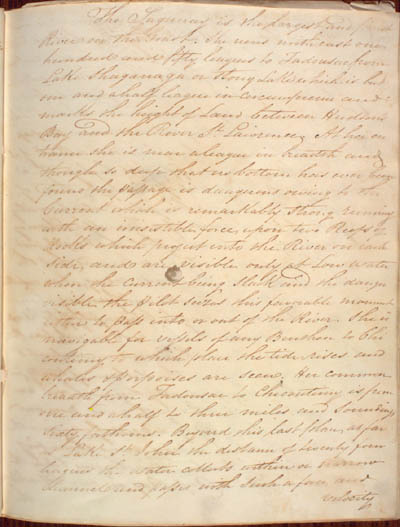 The Saguenay is the largest and finest
River on this Coast. She runs north east one
hundred and fifty leagues to Tadousac from
Lake Shaganaga or Strong Lake which is but
one and a half league in Circumference and
marks the height of Land between Hudsons
Bay and the River St. Lawrence. At her en-
trance she is near a league in breadth and
though so deep that no bottom has ever been
found the passage is dangerous owing to the
Current which is remarkably strong running
with an irresistible force upon two Reefs of
Rocks which project into the River on each
Side, and are visible only at Low water
when the Current being Slack and the danger
visible the pilot seizes this favorable moment
either to pass into or out of the River. She is
navigable for vessels of any Burthen to Che
coutimy to which place the tide rises and
whales & porpoises are seen. Her common
breadth from Tadousac to Checoutimy is from
one and a half to three miles and Soundings
Sixty fathoms. Beyond this last place, as far
Lake St. John the distance of twenty four
leagues the water collects within a narrow
Channel and passes with Such a force, and
velocity